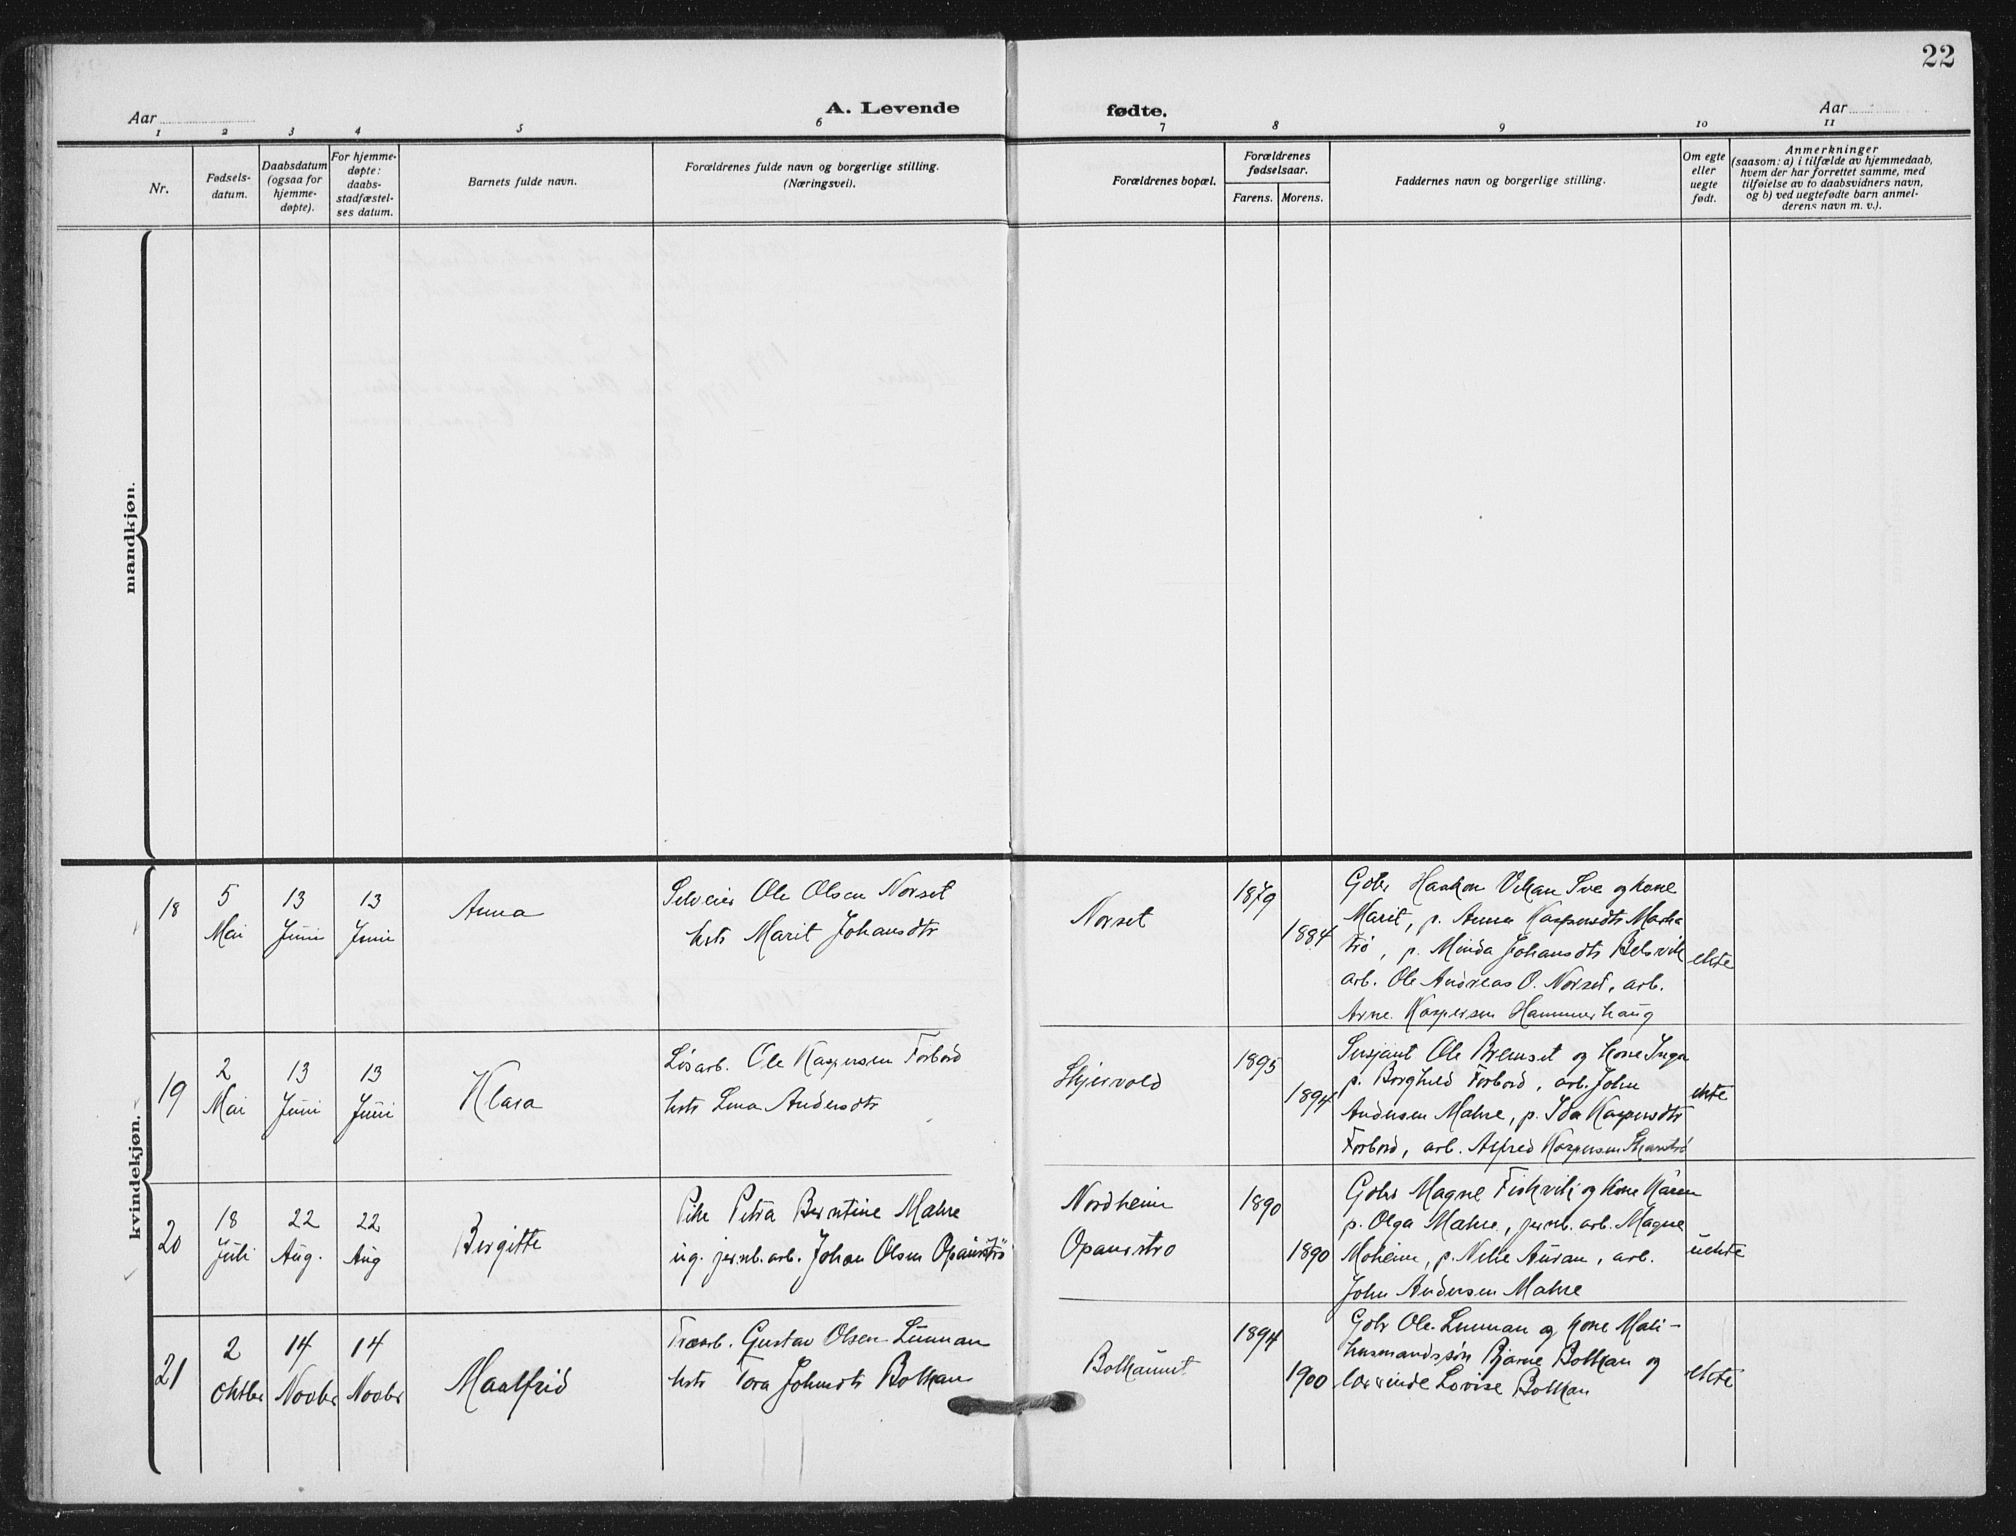 22
A. Levende fødte.
Aar
Aar
1 2 3 4 5 6 7 8 9 10 11
Nr.
Fødsels-
datum.
Daabsdatum
(ogsaa for
hjemme-
døpte).
For hjemme-
døpte:
daabs-
stadfæstel-
ses datum.
Barnets fulde navn.
Forældrenes fulde navn og borgerlige stilling.
(Næringsvei).
Forældrenes bopæl.
Forældrenes
fødselsaar.
Farens. Morens.
Faddernes navn og borgerlige stilling.
Om egte
eller
uegte
født.
Anmerkninger
(saasom: a) i tilfælde av hjemmedaab,
hvem der har forrettet samme, med
tilføielse av to daabsvidners navn,
og b) ved uegtefødte barn anmel-
derens navn m. v.).
mandkjøn.
kvindekjøn.
18
5
Mai
13
Juni
13
Juni
Anna
Selveier Ole Olsen Norset
hstr Marit Johansdtr
Norset
1879
1884
Gbr Haakon Vikan Sve og kone
Marit, p. Anna Kaspersdtr
p. Minda Johansdtr Belsvik
arb. Ole Andreas O. Norset, arb.
Arne Kaspersen Hammerhaug
ekte
19
2
Mai
13
Juni
13
Juni
Klara
Løsarb. Ole Kaspersen Forbord
hstr Lina Andersdtr
Skjervold
1895
1894
Sersjant Ole Bremset og kone Inga
p. Borghild Forbord, arb. John
Andersen Mæhre, p. Ida Kaspersdtr
Forbord, arb. Alfred Kaspersen
ekte
20
18
Juli
22
Aug.
22
Aug
Birgitte
Pike Petra Berntine Mæhre
ug. jernb. arb. Johan Olsen Opanstrø
Nordheim
Opanstrø
1890
1890
Gbr Magne Fiskvik og kone Karen
p. Olga Mæhre, jernb. arb. Magne
Moheim, p. Nelie Auran, arb.
John Andersen Mæhre
uekte
21
2
Oktbr
14
Novbr
14
Novbr
Maalfrid
Træarb. Gustav Olsen Linman
hstr Tora Johnsdtr Bolkan
Bolkaunet
1894
1900
Gbr Ole Linman og kone Mali -
husmandssøn Bjarne Bolkan og
Lovise Bolkan
ekte